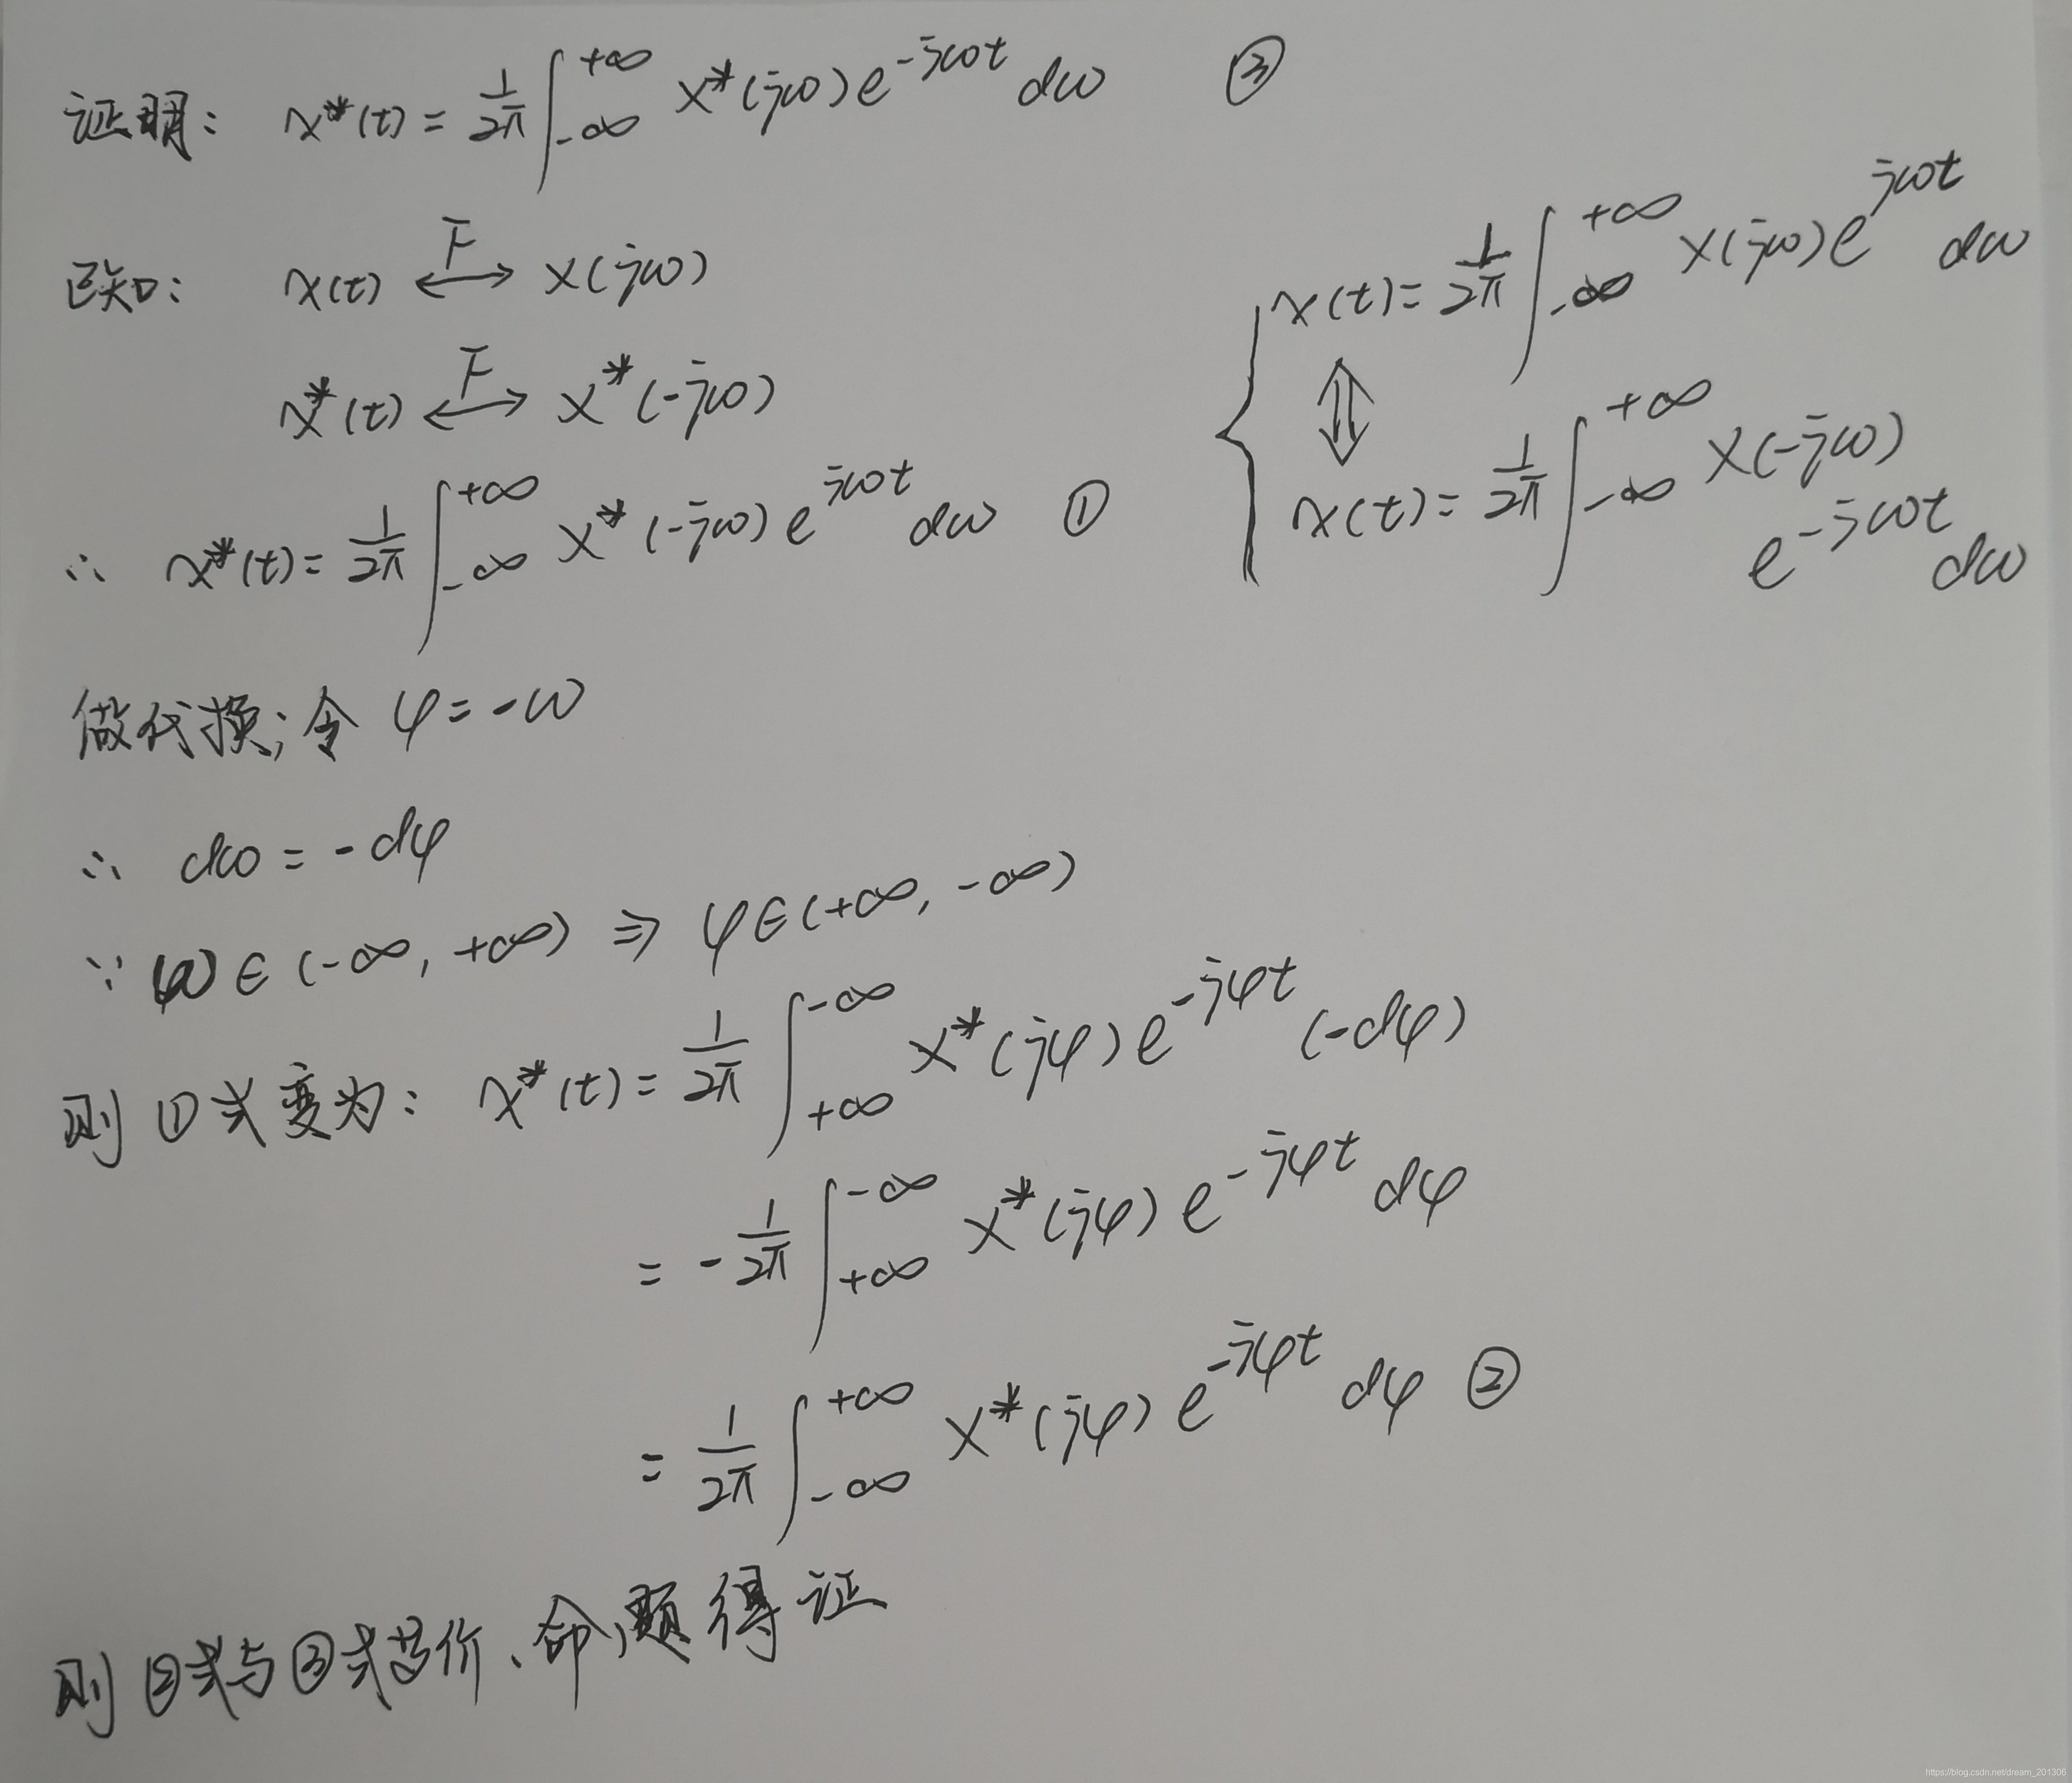 证明: x*(t) = 1/2π ∫_{-∞}^{+∞} X*(jω) e^{-jωt} dω ③
已知: x(t) ⟷^F X(jω)
x*(t) ⟷^F X*(-jω)
∴ x*(t) = 1/2π ∫_{-∞}^{+∞} X*(-jω) e^{jωt} dω ①
{ x(t) = 1/2π ∫_{-∞}^{+∞} X(jω) e^{jωt} dω
⇕
x(t) = 1/2π ∫_{-∞}^{+∞} X(-jω)
e^{-jωt} dω
做代换; 令 φ = -ω
∴ dω = -dφ
∵ ω ∈ (-∞, +∞) ⇒ φ ∈ (+∞, -∞)
则 ① 式变为: x*(t) = 1/2π ∫_{+∞}^{-∞} X*(jφ) e^{-jφt} (-dφ)
= -1/2π ∫_{+∞}^{-∞} X*(jφ) e^{-jφt} dφ
= 1/2π ∫_{-∞}^{+∞} X*(jφ) e^{-jφt} dφ ②
则 ② 式与 ③ 式等价、命题得证
https://blog.csdn.net/dream_201306